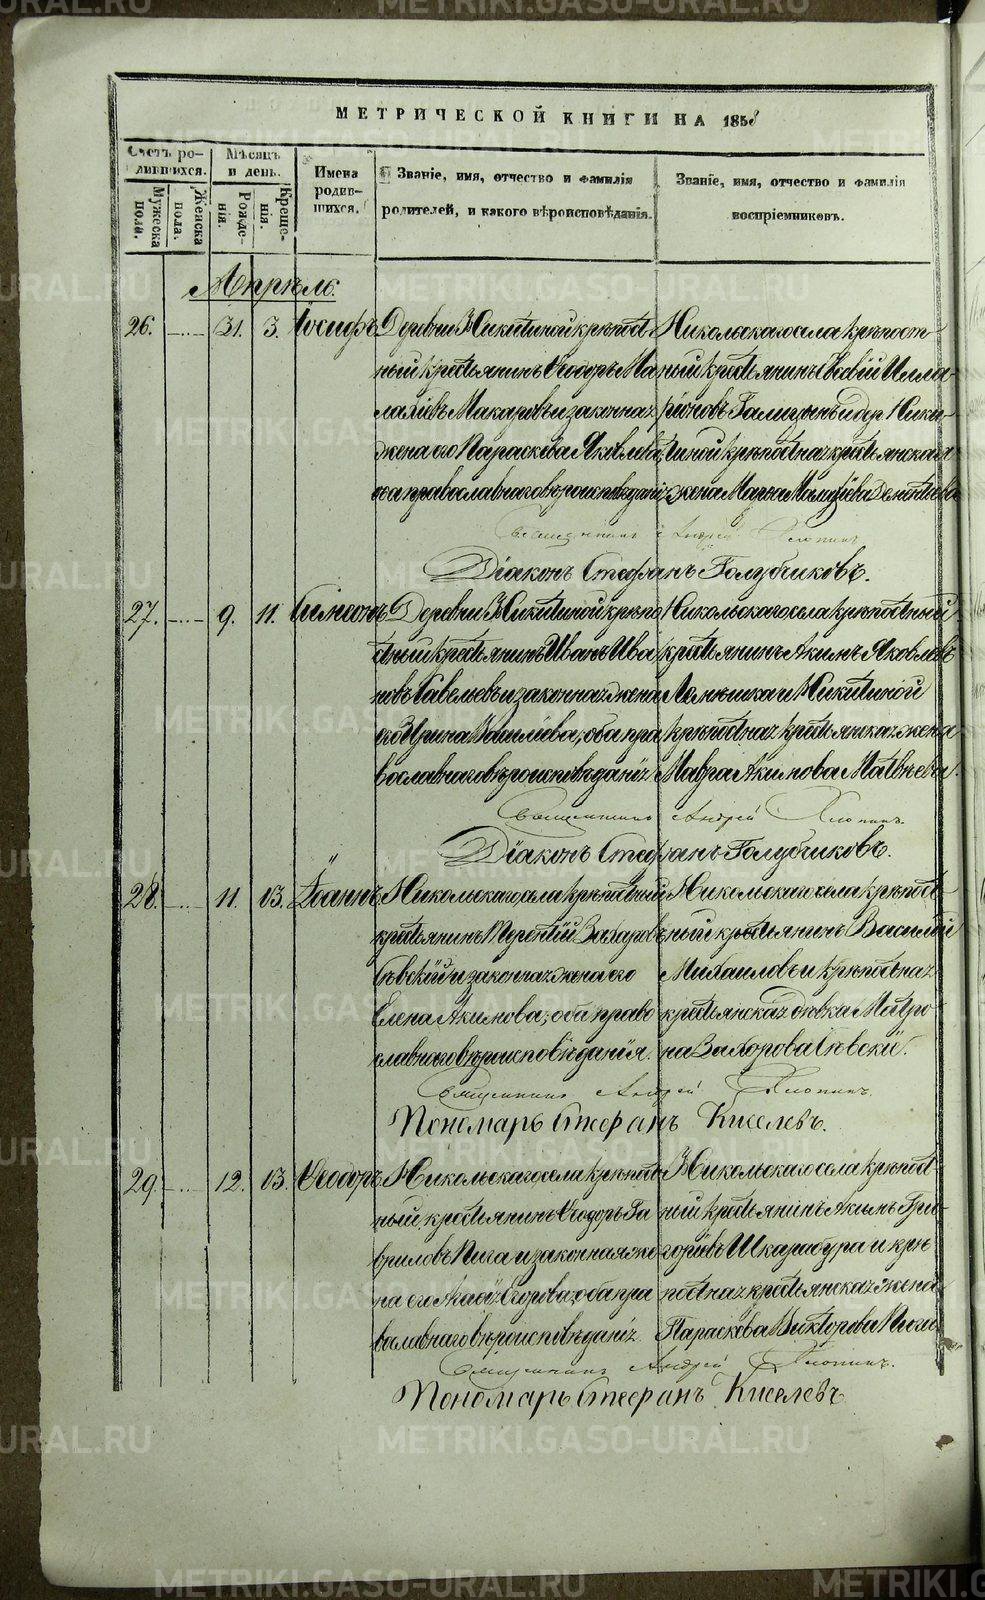 МЕТРИЧЕСКОЙ КНИГИ НА 1858
Счетъ ро-
дившихся.
Мужеска
пола.
Женска
пола.
Мѣсяцъ
и день.
Рожде-
нія.
Креще-
нія.
Имена
родив-
шихся.
Званіе, имя, отчество и фамилія
родителей, и какого вѣроисповѣданія.
Званіе, имя, отчество и фамилія
воспріемниковъ.
Апрѣль.
26. 31. 3. Іосифъ
Деревни Никитиной крѣпост
ный крестьянинъ Ѳеодоръ Ма
лахіевъ Макаровъ и законная
жена его Параскева Яковлева,
оба православнаго вѣроисповѣданія
Никольскаго села крѣпост
ный крестьянинъ Илла-
ріоновъ Галицынъ и дер. Ники-
тиной крѣпостная крестьянская
жена Марѳа
Священникъ Андрей Хлопинъ
Діаконъ Стефанъ Голубчиковъ.
27. 9. 11. Симеонъ
Деревни Никитиной крѣпо
стный крестьянинъ Иванъ Ива
новъ Савельевъ и законная жена
его Ирина Василіева, оба пра
вославнаго вѣроисповѣданія
Никольскаго села крѣпостный
крестьянинъ Акимъ Яковлевъ
и Никитиной
крѣпостная крестьянская жена
Мавра Акимова Матвѣева.
Священникъ Андрей Хлопинъ.
Діаконъ Стефанъ Голубчиковъ.
28. 11. 13. Іоаннъ
Никольскаго села крѣпостный
крестьянинъ Терентій Захаровъ
Сѣвскій и законная жена его
Елена Акимова, оба право
славнаго вѣроисповѣданія.
Никольскаго села крѣпост
ный крестьянинъ Василій
Михаиловъ и крѣпостная
крестьянская дѣвка Матро
на Захорова Сѣвскій.
Священникъ Андрей Хлопинъ.
Пономарь Стефанъ Киселевъ.
29. 12. 13. Ѳеодоръ
Никольскаго села крѣпост
ный крестьянинъ Ѳеодоръ Га
вриловъ Пига и законная же
на его Агафія Егорова, оба пра
вославнаго вѣроисповѣданія
Никольскаго села крѣпост-
ный крестьянинъ Акимъ Гри-
горіевъ Шкарабура и крѣ
постная крестьянская жена
Параскева Викторова Пиги
Священникъ Андрей Хлопинъ.
Пономарь Стефанъ Киселевъ
METRIKI.GASO-URAL.RU